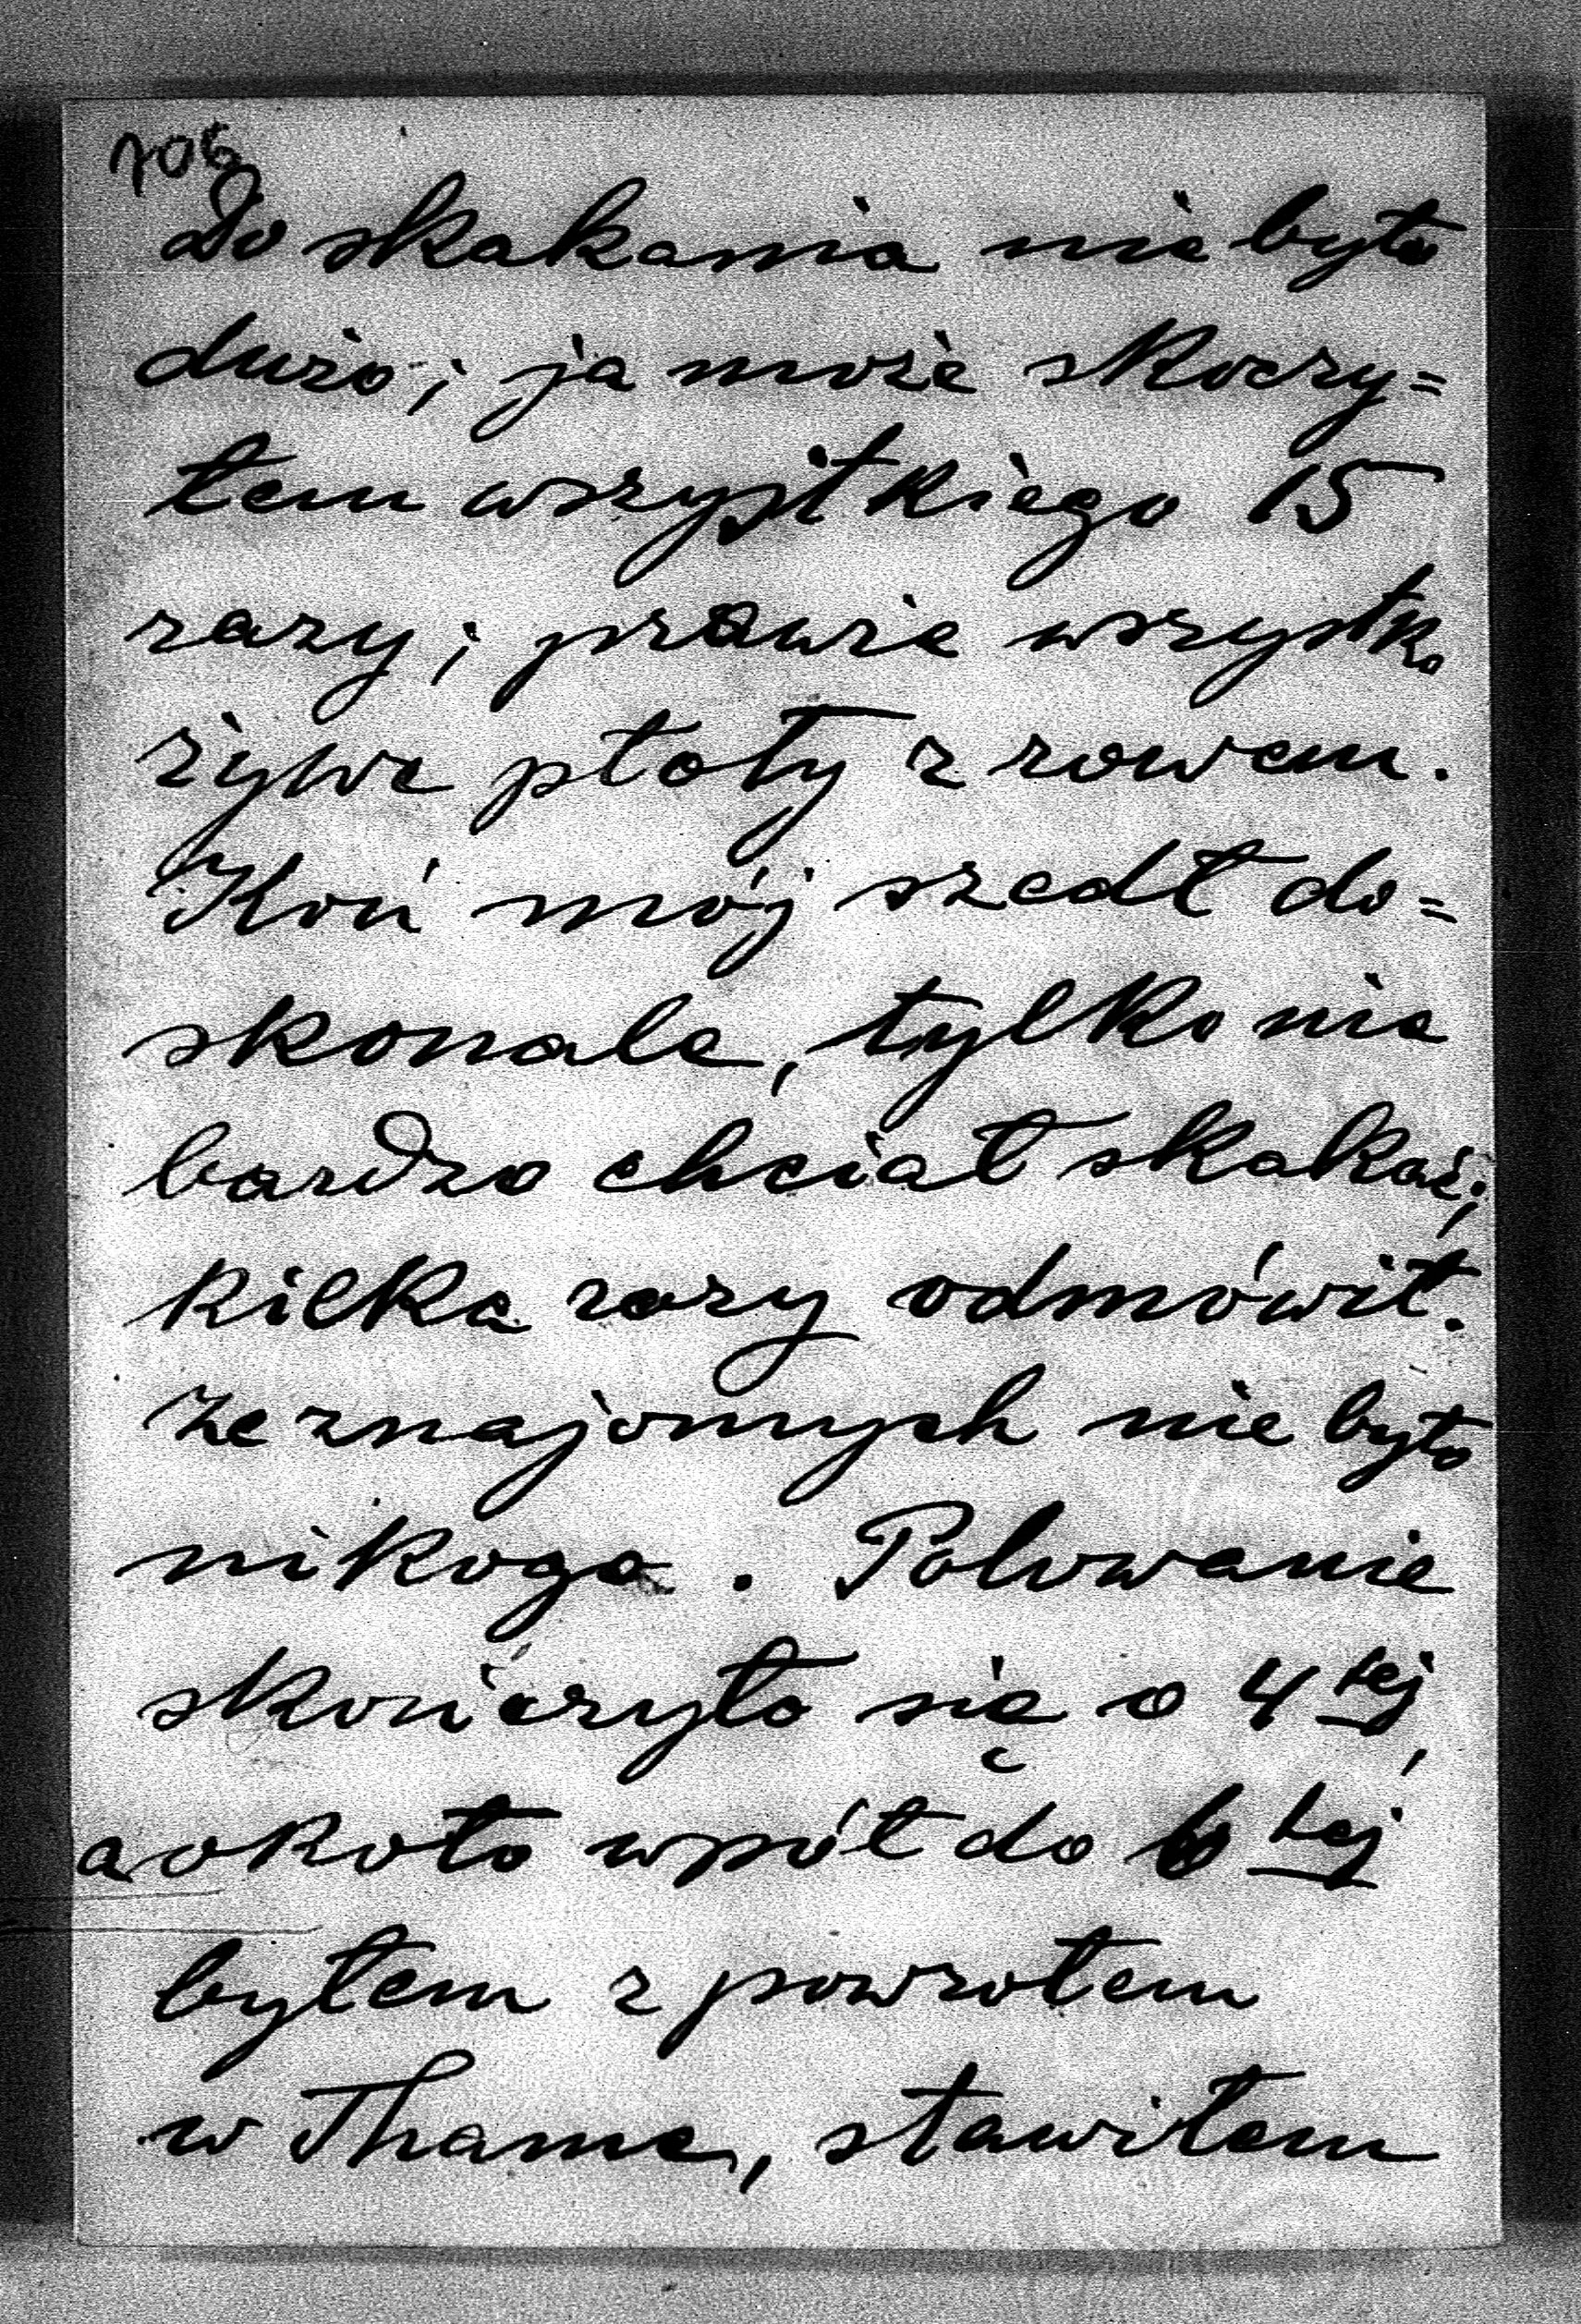 706
Do skakania nie było
dużo; ja może skoczy=
łem wszystkiego 15
razy; prawie wszystko
żywe płoty z rowem.
Koń mój szedł do=
skonale, tylko nie
bardzo chciał skakać;
kilka razy odmówił.
Ze znajomych nie było
nikogo. Polowanie
skończyło się o 4tej,
a około wpół do 6tej
byłem z powrotem
w Thame, stawiłem